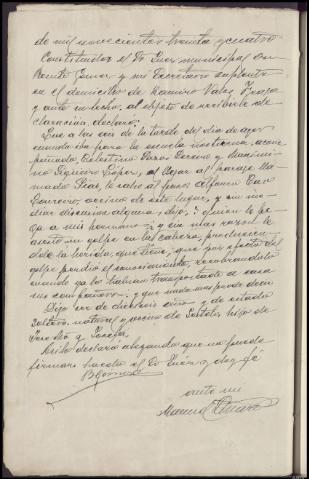 de mil novecientos treinta y cuatro
Constituidos el Sr Juez municipal Don
Benito Gomez y mi Secretario suplente
en el domicilio de Ramiro Vales
y ante su lecho, al objeto de recibirle de-
claracion, declaró:
Que a las seis de la tarde del dia de ayer
cuando iba para la escuela nocturna, acom-
pañado, Celestino Pazos y Maximi-
no Piguero López, al llegar al paraje lla-
mado Real, le salio al paso Alfonso
Loureiro, vecino de este lugar, y sin me-
diar discusion alguna, dijo, ¿ quien le pe-
ga a mi hermano? y sin mas razon le
asestó un golpe en la cabeza, producien-
dole la herida que tiene, que por efecto del
golpe perdió el conocimiento, recobrandolo
cuando ya lo habian transportado a casa
sus compañeros: y que nada mas puede decir
Dijo ser de dieciseis años y de estado
soltero natural y vecino de hijo de
y Josefa.
Asi lo declaró alegando que no puede
firmar. Hacelo el Sr Juez y doy fé
B Gomez
ante mi
Manuel